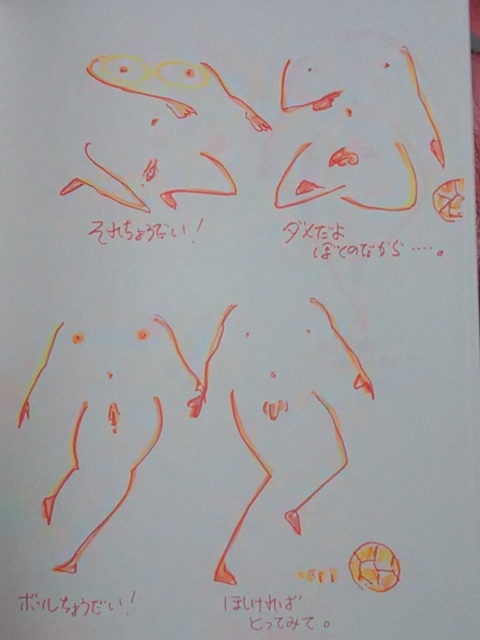 それちょうだい!
ダメだよ
ぼくのだから……。
ボールちょうだい!
ほしければ
とってみて。